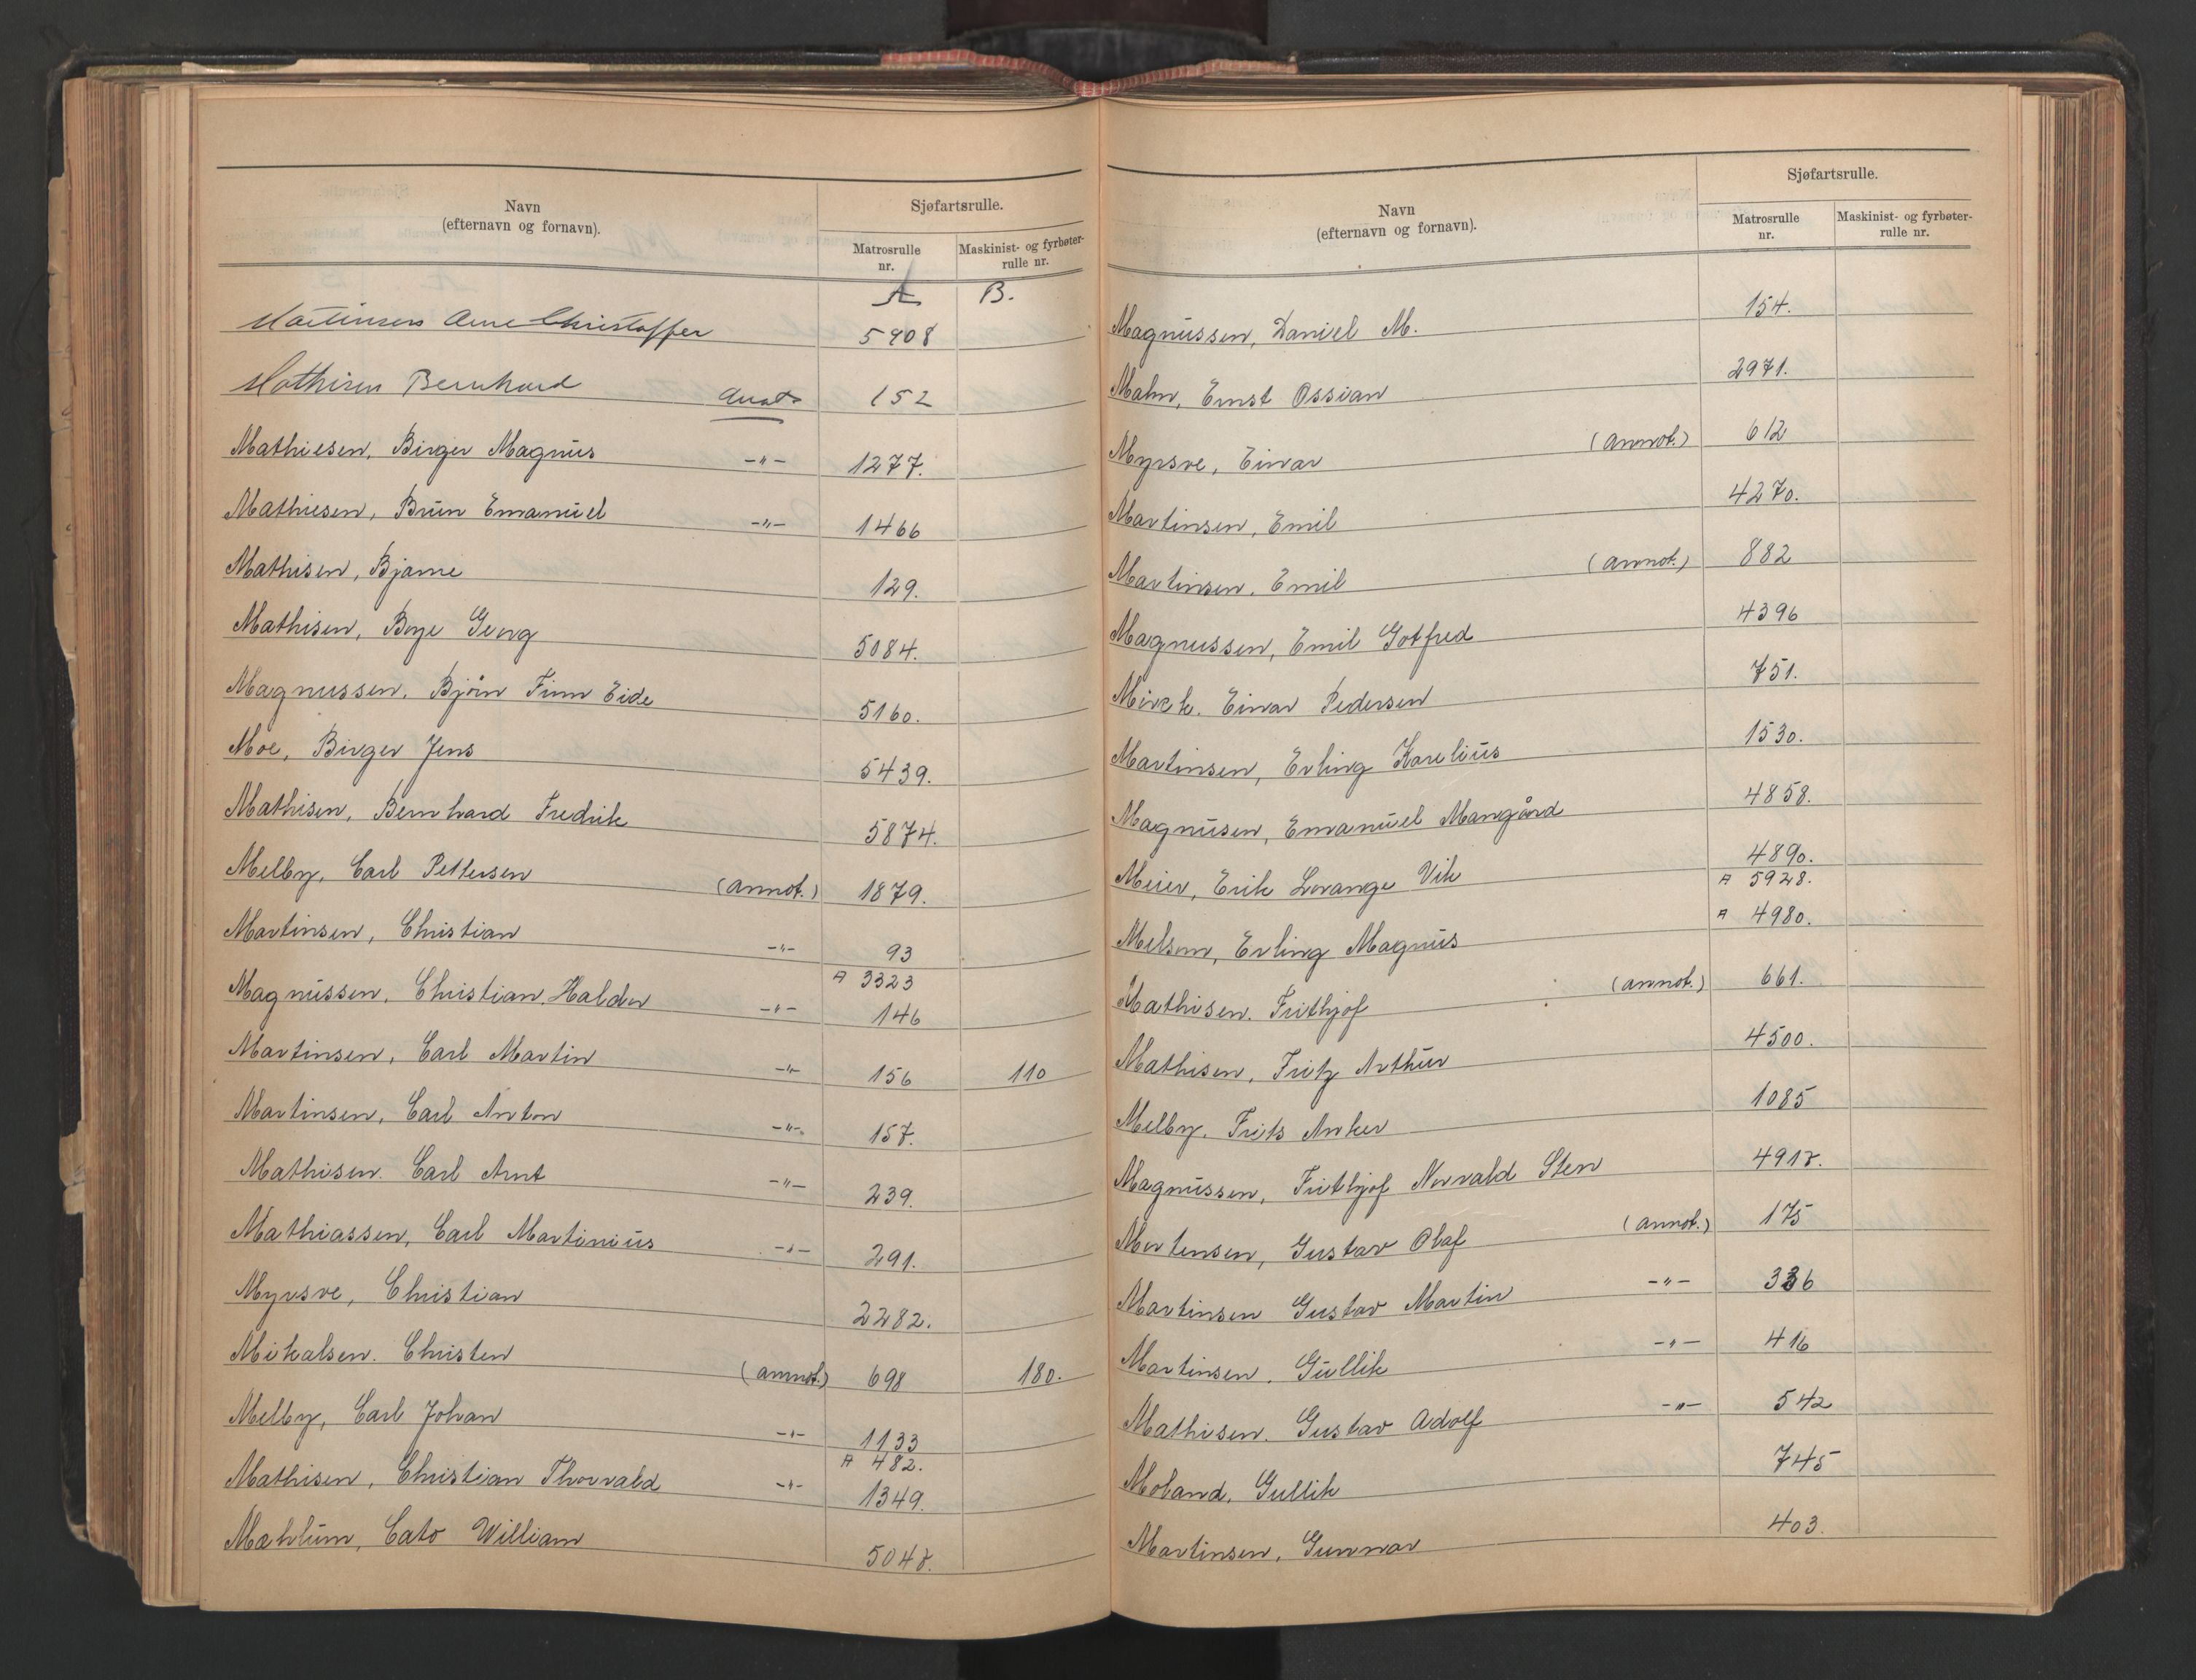 Navn
(efternavn og fornavn).
Sjøfartsrulle.
Matrosrulle nr.
Maskinist- og fyrbøter-rulle nr.
A B.
Martinsen Arne Christoffer 5908
Mathisen Bernhard Anot 152
Mathiesen, Birger Magnus -"- 1277.
Mathiesen, Brun Emanuel -"- 1466
Mathisen, Bjarne 129.
Mathisen, Boye Georg 5084.
Magnussen, Bjørn Finn Eide 5160.
Moe, Birger Jens 5439.
Mathisen, Bernhard Fredrik 5874.
Melby, Carl Pettersen (annot.) 1879.
Martinsen, Christian -"- 93
A 3323
Magnussen, Christian Haldor -"- 146
Martinsen, Carl Martin -"- 156 110
Martinsen, Carl Anton -"- 157.
Mathisen. Carl Arnt -"- 239.
Mathiassen, Carl Martinius -"- 291.
Myrsve, Christian 2282.
Mikalsen. Christen (annot.) 698 180.
Melby, Carl Johan -"- 1133
A 482.
Mathisen, Christian Thorvald -"- 1349.
Mæhlum, Cato William 5048.
Navn
(efternavn og fornavn).
Sjøfartsrulle.
Matrosrulle nr.
Maskinist- og fyrbøter-rulle nr.
Magnussen, Daniel M. 154.
Malm, Ernst Ossian 2971.
Myrsve, Einar (annot.) 612
Martinsen, Emil 4270.
Martinsen, Emil (annot.) 882
Magnussen, Emil Gotfred 4396
Mørch. Einar Pedersen 751.
Martinsen, Erling Karelius 1530.
Magnusen, Emanuel Mangård 4858.
Meier, Erik Lorange Vik 4890.
A 5928.
Melsom, Erling Magnus A 4980.
Mathisen. Frithjof (annot.) 661.
Mathisen, Fritz Arthur 4500.
Melby. Frits Anker 1085
Magnussen, Frithjof Norvald Sten 4918.
Mortensen, Gustav Olaf (annot.) 175
Martinsen Gustav Martin -"- 336
Martinsen, Gullik -"- 416
Mathisen. Gustav Adolf -"- 542
Moland, Gullik 745
Martinsen, Gunnar 403.